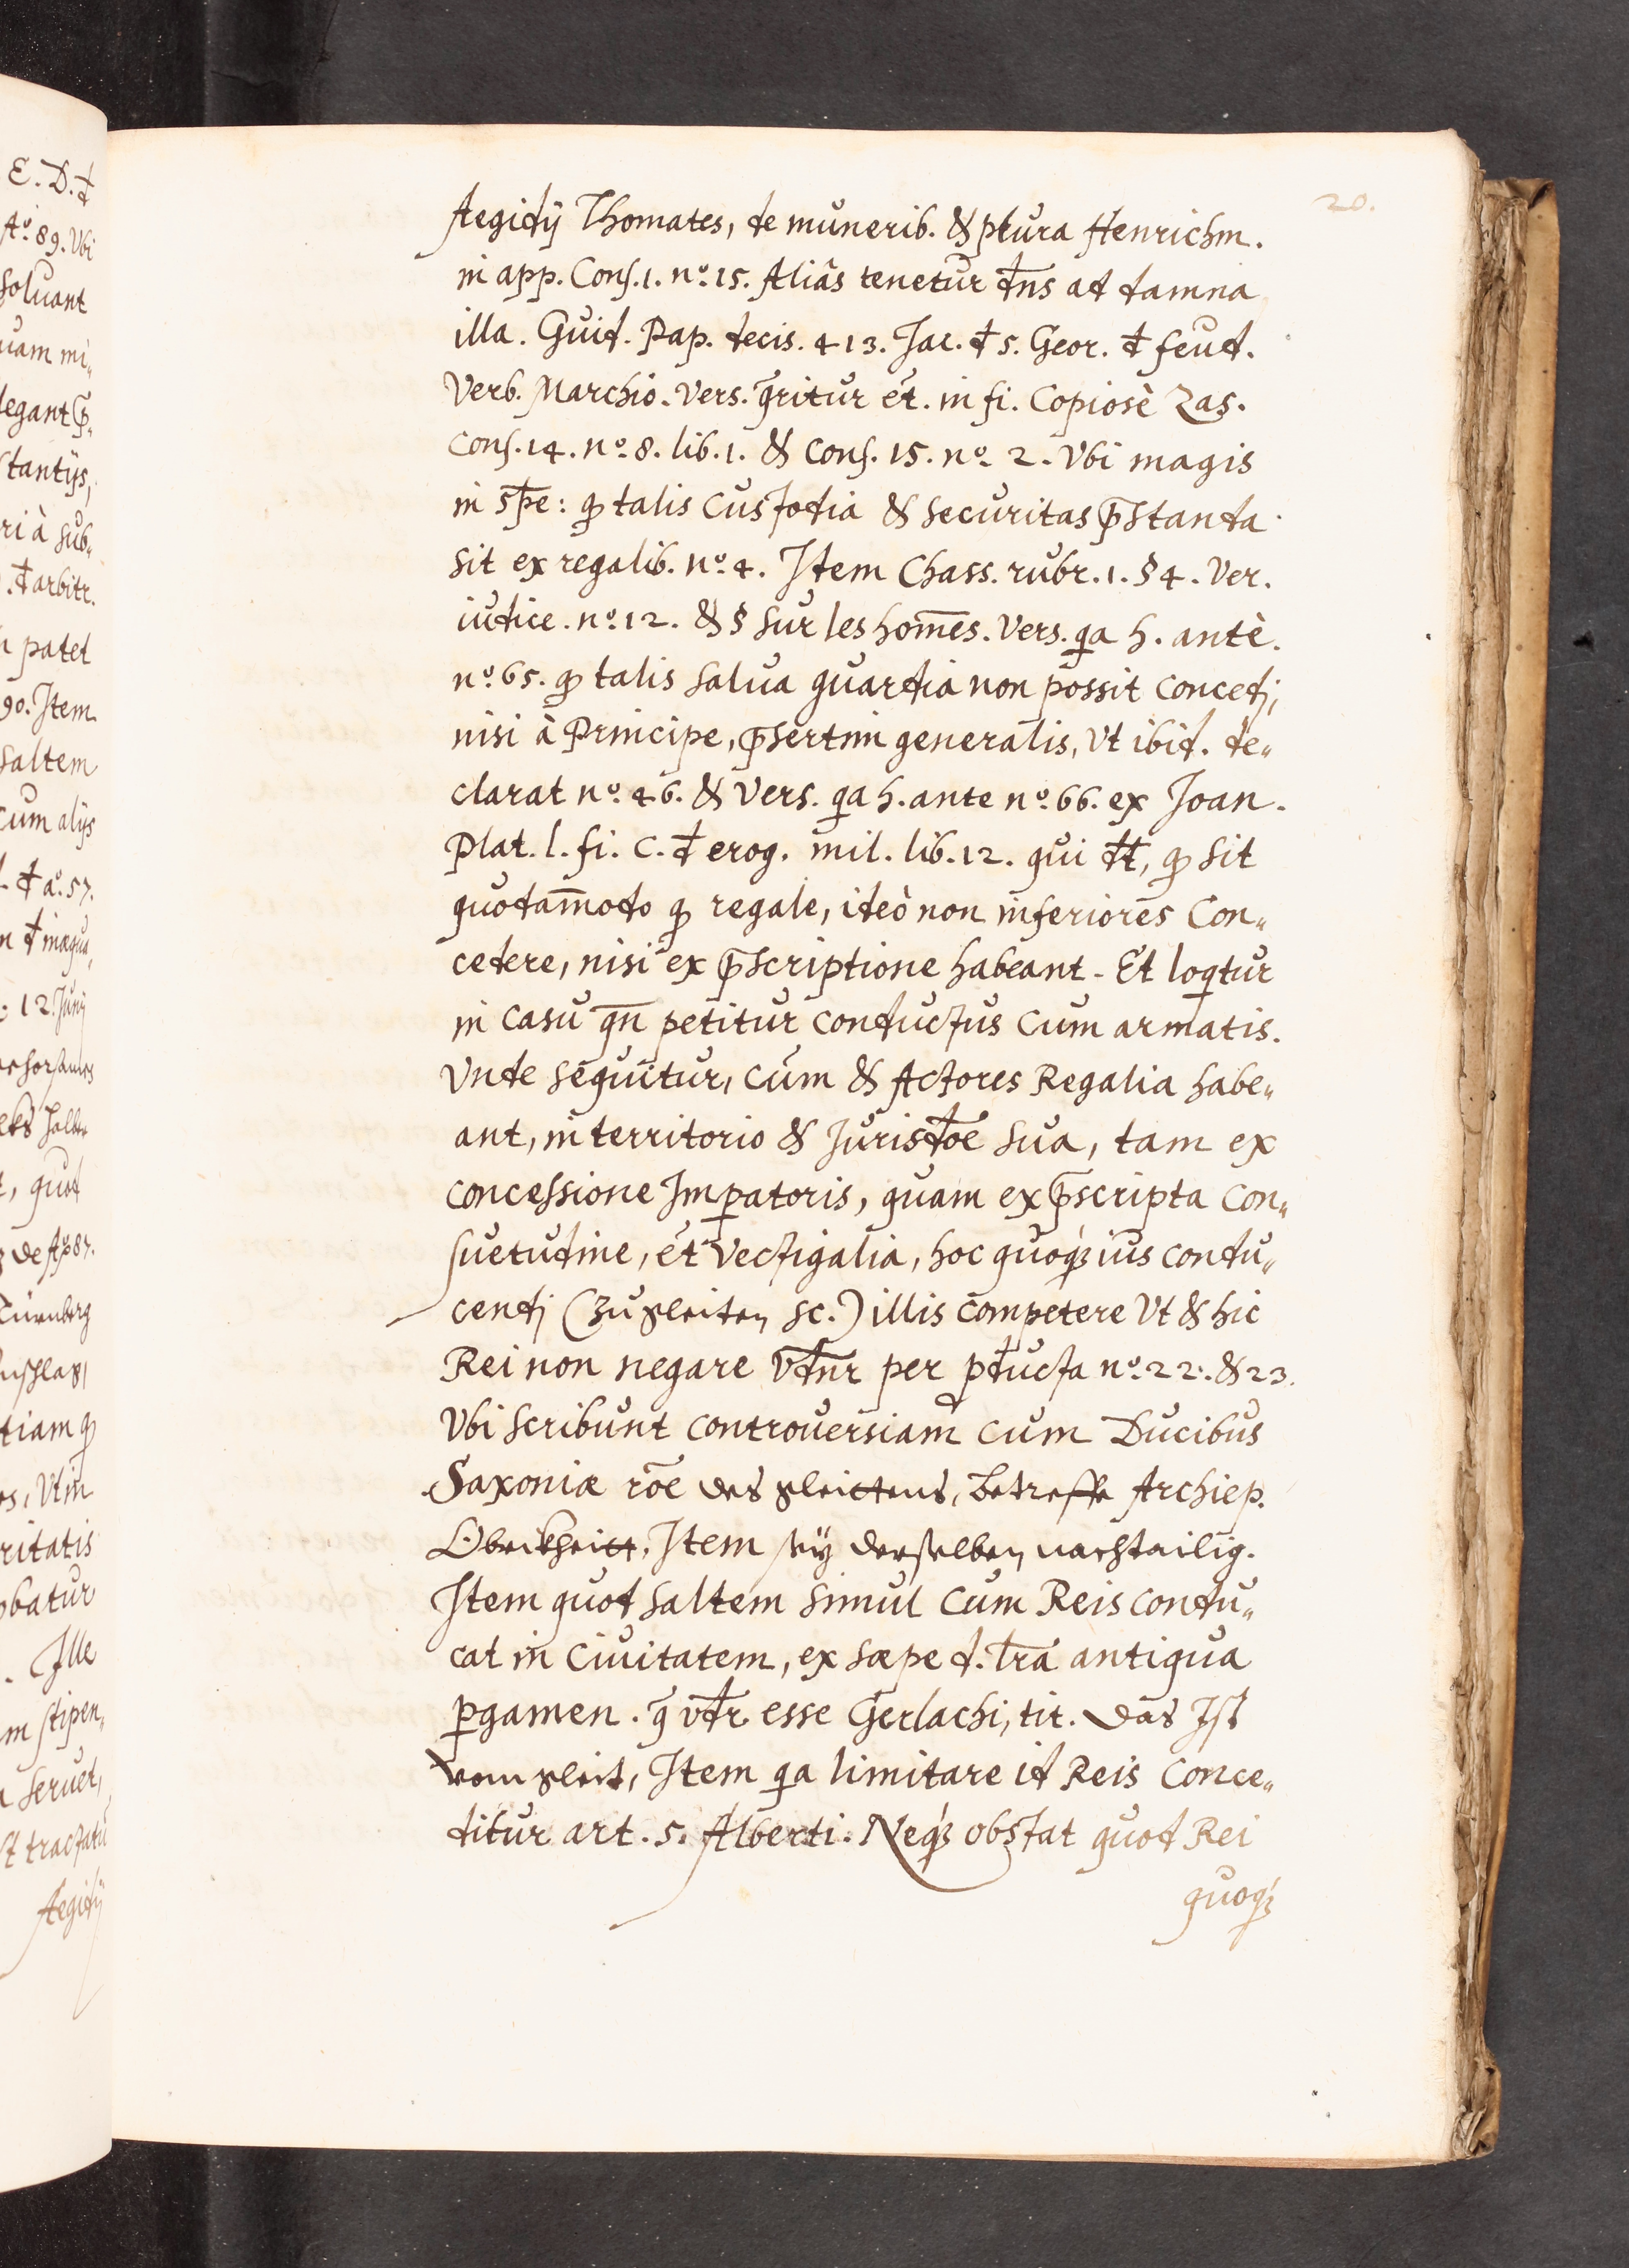 20.
Aegidij Thomates, de munerib. & plura Henrichm.
in app. Cons. 1. no. 15. Aliâs tenetur dns̄ ad damna
illa. Guid. Pap. decis. 413. Jac. đ S. Geor. đ feud.
Verb. Marchio. Vers. q̄ritur ēt. in fi. Copiosè Zas.
Cons. 14. no. 8. lib. 1. & Cons. 15. no. 2. Vbi magis
in sp̄e: qđ talis Custodia & Securitas p̄standa
sit ex regalib. no. 4. Item Chass. rubr. 1. § 4. Ver.
iudice. no. 12. & § sur les hom̄es. Vers. qa h. antè.
no. 65. qđ talis Salua guardia non possit Concedj,
nisi à Principe, p̄sertim generalis, Vt ibid. de„
clarat no. 46. & Vers. qa h. ante no. 66. ex Joan.
Plat. l. fi. C. đ erog. mil. lib. 12. qui đt, qđ sit
quodam̄odo qđ regale, ideò non inferiores Con„
cedere, nisi ex p̄scriptione habeant. Et loqtur
in Casu qn̄ petitur Conductus Cum armatis.
Vnde sequitur, Cùm & Actores Regalia habe„
ant, in territorio & Jurisdōe sua, tam ex
Concessione Imp̱atoris, quam ex p̄scripta Con„
suetudine, ēt Vectigalia, hoc quoqꝫ ius Condu„
cendj (zu gleiten sc.) illis Competere Vt & hic
Rei non negare vđnr per pđucta no. 22. & 23.
Vbi scribunt Controuersiam Cum Ducibus
Saxoniæ rōe des gleittens, betreffe Archiep.
Oberkheitt, Item sey derselben nachtailig.
Item quod saltem simul Cum Reis Condu„
cat in Ciuitatem, ex sæpe d. lr̄a antiqua
p̱gamen. q̄ vđr esse Gerlachi, tit. Das Ist
vom gleit, Item qa limitare id Reis Conce„
ditur art. 5. Alberti. Neqꝫ obstat quod Rei
quoqꝫ